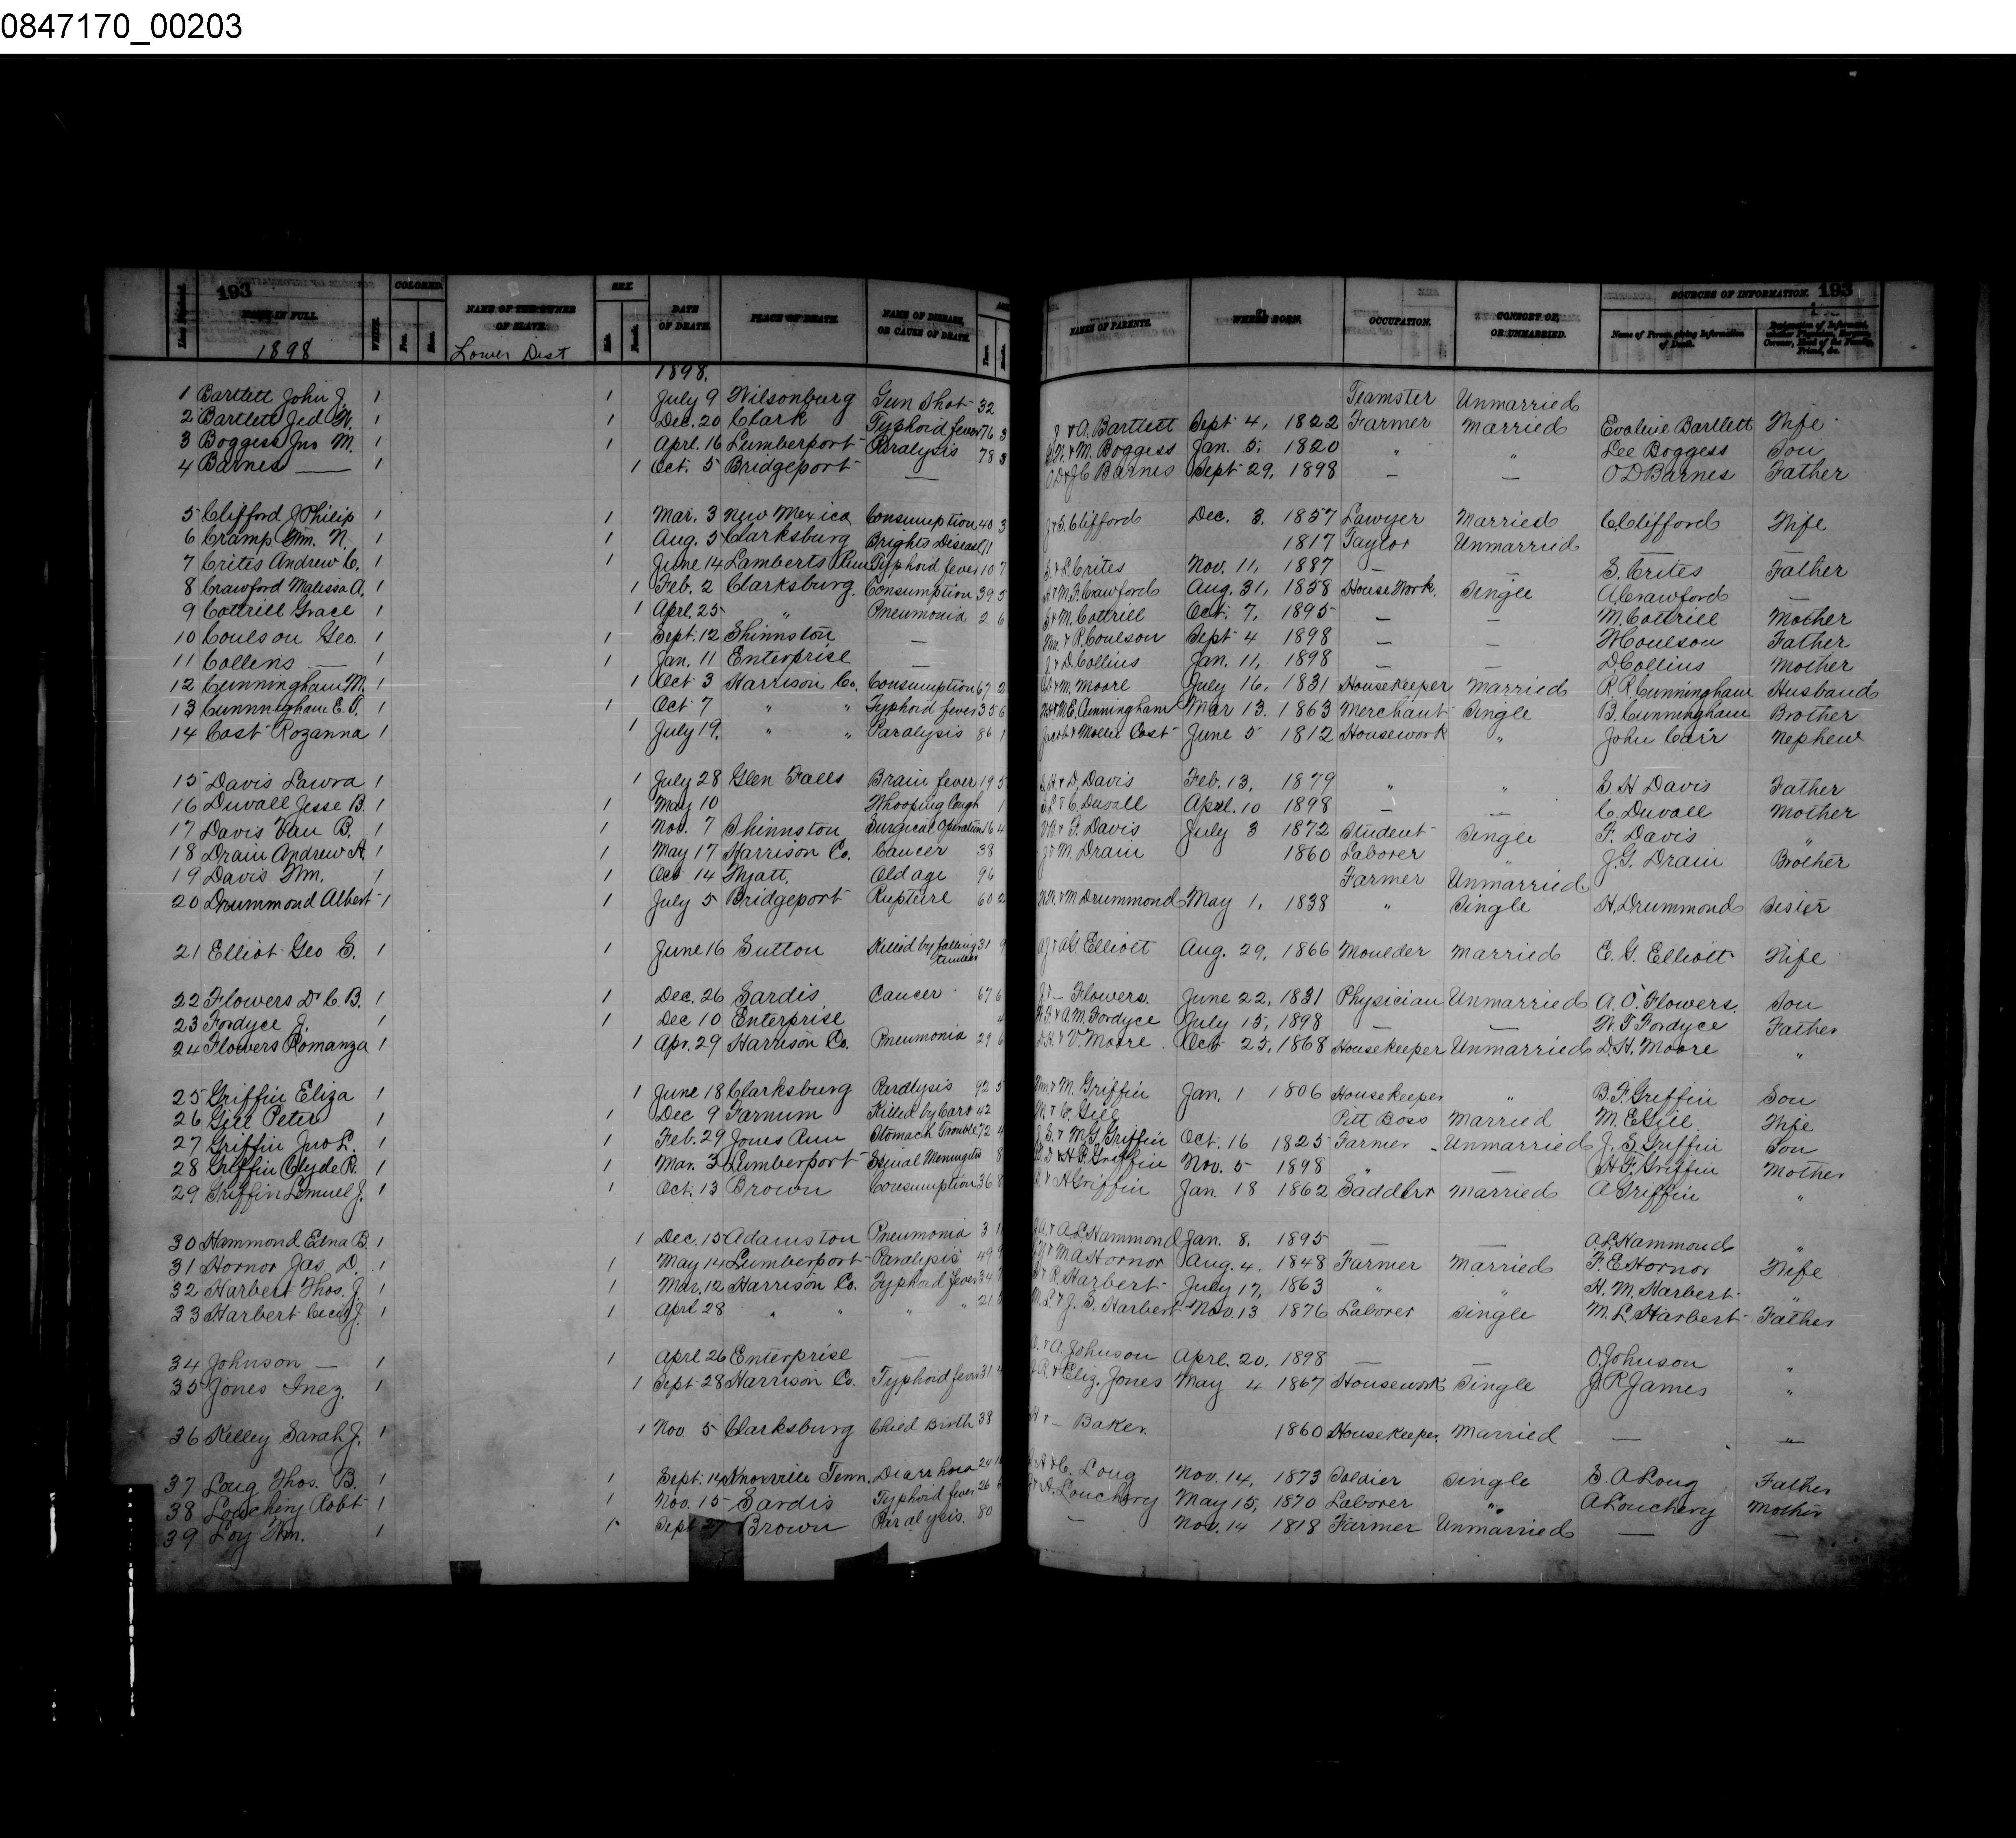 0847170_00203
193
NAME IN FULL.
1898
WHITE.
COLORED.
Free.
Slave.
NAME OF THE OWNER OF SLAVE.
Lower Dist
SEX.
Male.
Female.
DATE OF DEATH.
PLACE OF DEATH.
NAME OF DISEASE, OR CAUSE OF DEATH.
Years.
NAMES OF PARENTS.
WHERE BORN.
OCCUPATION.
CONSORT OF, OR UNMARRIED.
SOURCES OF INFORMATION.
193
Name of Person giving Information of Death.
1898.
1 Bartlett John J. 1 1 July 9 Wilsonburg Gun Shot 32 Teamster Unmarried
2 Bartlett Jed W. 1 1 Dec. 20 Clark Typhoid fever 76 3 J & A. Bartlett Sept 4, 1822 Farmer Married Evaline Bartlett Wife
3 Boggess Jno M. 1 1 Aprl. 16 Lumberport Paralysis 78 3 & M. Boggess Jan. 5, 1820 " " Lee Boggess Son
4 Barnes — 1 1 Oct. 5 Bridgeport — O D & J C Barnes Sept 29, 1898 — — O D Barnes Father
5 Clifford J Philip 1 1 Mar. 3 New Mexico Consumption 40 3 J & S. Clifford Dec. 3, 1857 Lawyer Married C Clifford Wife
6 Cramp Wm. N. 1 1 Aug. 5 Clarksburg Brights Disease 71 1817 Taylor Unmarried — —
7 Crites Andrew C. 1 1 June 14 Lamberts Run Typhoid fever 10 7 S. & L. Crites Nov. 11, 1887 — — S. Crites Father
8 Crawford Malissa A. 1 1 Feb. 2 Clarksburg Consumption 39 5 & M. F. Crawford Aug. 31, 1858 House Work. Single A Crawford —
9 Cottrill Grace 1 1 Aprl. 25 " Pneumonia 2 6 S & M. Cottrill Oct. 7, 1895 — — M. Cottrill Mother
10 Coulson Geo. 1 1 Sept. 12 Shinnston — Wm. & R. Coulson Sept 4 1898 — — W Coulson Father
11 Collens — 1 1 Jan. 11 Enterprise — J & D. Collins Jan. 11, 1898 — — D Collins Mother
12 Cunningham M. 1 1 Oct 3 Harrison Co. Consumption 67 2 & M. Moore July 16, 1831 Housekeeper Married R. R. Cunningham Husband
13 Cunningham E. P. 1 1 Oct 7 " " Typhoid fever 35 6 & M. E. Cunningham Mar 13. 1863 Merchant Single B. Cunningham Brother
14 Cost Rozanna 1 1 July 19. " " Paralysis 86 1 Jacob & Mollie Cost June 5 1812 Housework " John Carr Nephew
15 Davis Lawra 1 1 July 28 Glen Falls Brain fever 19 5 S. H. & D. Davis Feb. 13, 1879 " " S H Davis Father
16 Duvall Jesse B. 1 1 May 10 Whooping Cough 1 & C. Duvall Aprl. 10 1898 — — C. Duvall Mother
17 Davis Van B. 1 1 Nov. 7 Shinnston Surgical Operation 26 4 & F. Davis July 3 1872 Student Single F. Davis "
18 Drain Andrew A. 1 1 May 17 Harrison Co. Cancer 38 J & M. Drain 1860 Laborer " J. G. Drain Brother
19 Davis Wm. 1 1 Oct 14 Wyatt. Old age 96 Farmer Unmarried
20 Drummond Albert 1 1 July 5 Bridgeport Rupture 60 2 & M Drummond May 1, 1838 " Single H. Drummond Sister
21 Elliot Geo S. 1 1 June 16 Sutton Killed by falling timber 31 9 & A G. Elliott Aug. 29, 1866 Moulder Married E. G. Elliott Wife
22 Flowers Dr C. B. 1 1 Dec. 26 Sardis Cancer 67 6 J. & — Flowers. June 22, 1831 Physician Unmarried A. O. Flowers. Son
23 Fordyce J. 1 1 Dec 10 Enterprise & A M Fordyce July 15, 1898 — — W. F Fordyce Father
24 Flowers Romanza 1 1 Apr. 29 Harrison Co. Pneumonia 29 6 D. H. & V. Moore Oct 25, 1868 Housekeeper Unmarried D. H. Moore "
25 Griffin Eliza 1 1 June 18 Clarksburg Paralysis 92 5 Wm. & M. Griffin Jan. 1 1806 Housekeeper " B. F. Griffin Son
26 Gill Peter 1 1 Dec 9 Farnum Killed by Cars 42 & C. Gill Pitt Boss Married M. E Gill Wife
27 Griffin Jno L. 1 1 Feb. 29 Jones Run Stomach Trouble 72 4 J. S. & M. G. Griffin Oct. 16 1825 Farmer Unmarried J. S Griffin Son
28 Griffin Clyde R. 1 1 Mar. 3 Lumberport Spinal Meningitis 8 & H. F. Griffin Nov. 5 1898 " — H. F. Griffin Mother
29 Griffin Lemuel J. 1 1 Oct. 13 Brown Consumption 36 8 & H Griffin Jan. 18 1862 Saddler Married A Griffin "
30 Hammond Edna B. 1 1 Dec. 15 Adamston Pneumonia 3 & A. L. Hammond Jan. 8, 1895 — — A. L. Hammond "
31 Hornor Jas. D. 1 1 May 14 Lumberport Paralysis 49 9 & M A Hornor Aug. 4, 1848 Farmer Married F. E Hornor Wife
32 Harbert Thos. J. 1 1 Mar. 12 Harrison Co. Typhoid fever 34 & R. Harbert July 17, 1863 " " H. M. Harbert "
33 Harbert Cecil J. 1 1 Aprl 28 " " " " 21 5 M. L. & J. S. Harbert Nov. 13 1876 Laborer Single M. L. Harbert Father
34 Johnson — 1 1 Aprl 26 Enterprise — & A. Johnson Aprl. 20, 1898 — — O. Johnson "
35 Jones Inez. 1 1 Sept 28 Harrison Co. Typhoid fever 31 & Eliz. Jones May 4 1867 Housework Single J. R James "
36 Kelley Sarah J. 1 1 Nov 5 Clarksburg Child Birth 38 & — Baker 1860 Housekeeper Married — "
37 Loug Thos. B. 1 1 Sept. 14 Knoxville Tenn. Diarrhoea 24 & C. Loug Nov. 14, 1873 Soldier Single S. A Loug Father
38 Louchery Robt 1 1 Nov. 15 Sardis Typhoid fever 26 6 & A. Louchery May 15, 1870 Laborer " A Louchery Mother
39 Loy Wm. 1 1 Sept 27 Brown Paralysis. 80 — Nov. 14 1818 Farmer Unmarried — —